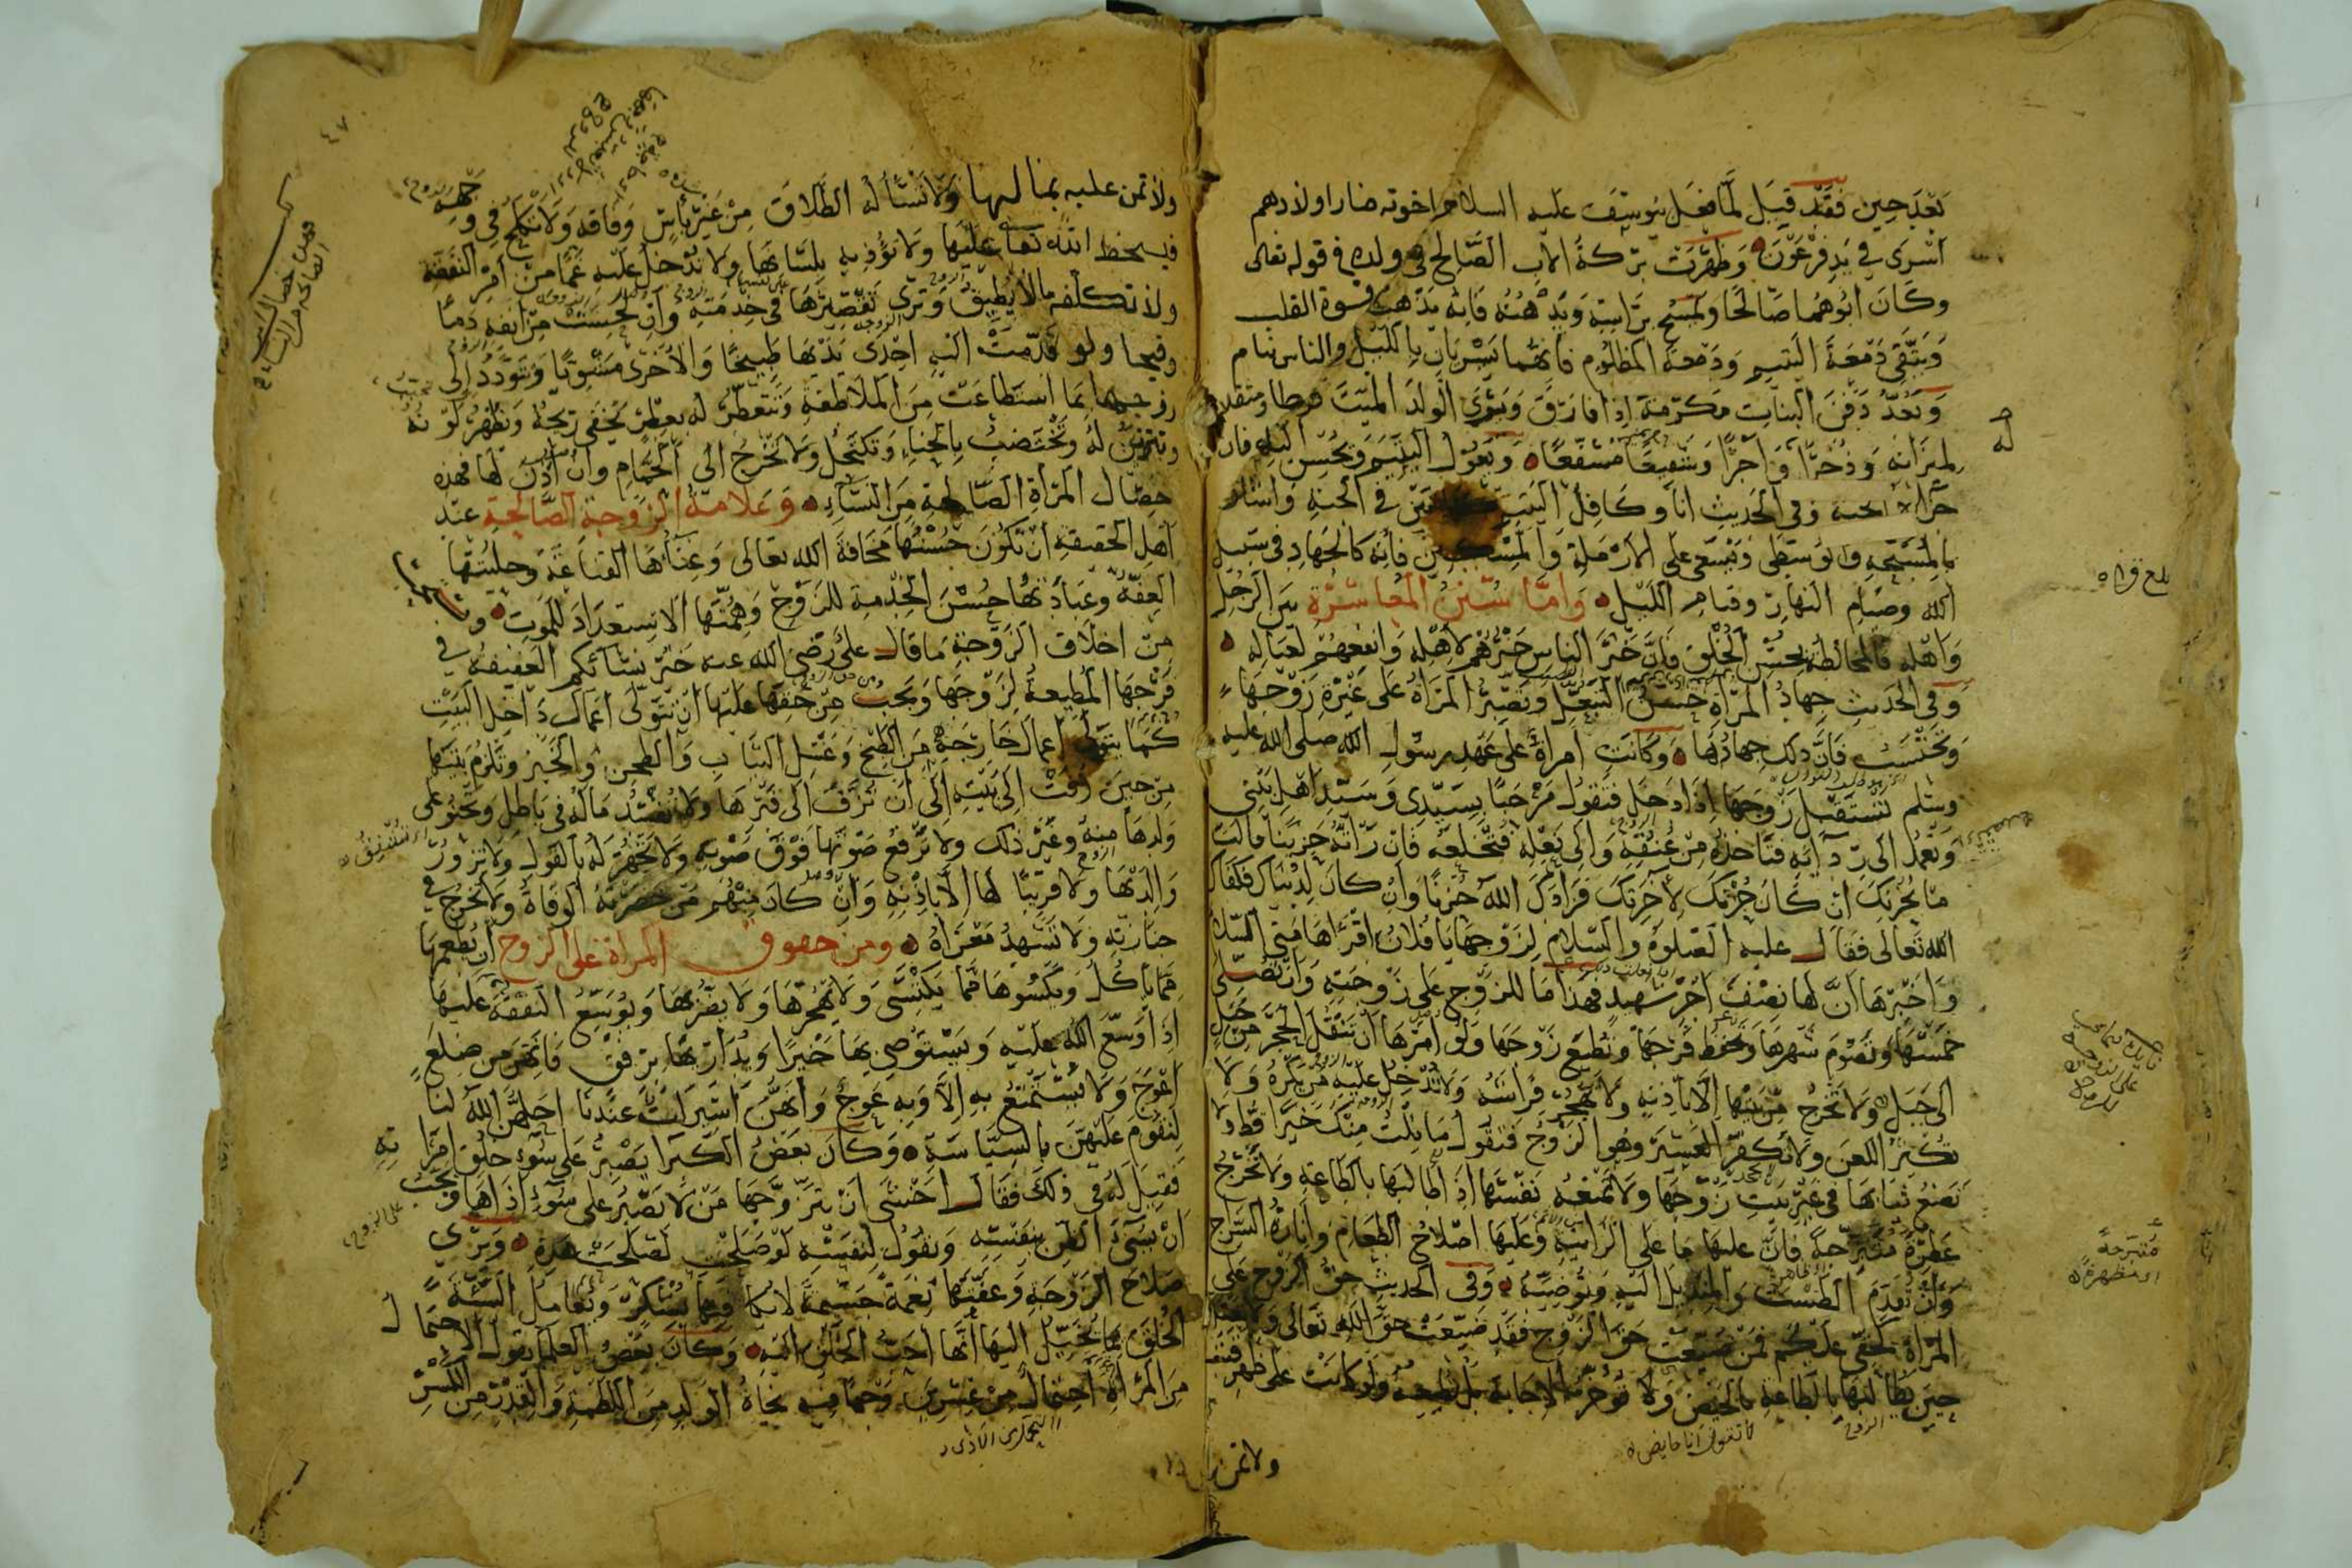 بَعْدَ حين فَقَد قيلَ لمّا فعَل يوسف عليه السلام اخوته صار اولادهم
اسْرَى في يدِ فِرْعَوْن وَظهَرَت بَرَكةُ الاب الصَّالح في ولده في قوله تعالى
وكَانَ ابُوهُما صَالحًا وَيمْسَح بَرَاسه وَيَدْهنُهُ فَانه يذهب قسوة القلب
وَيتّقى دَمْعَةَ اليَتيم وَدَعْوَة المظلُوم فانهما يَسْرِيان بِالليْل والناس نيام
وَيَعُدّ دَفْنَ البنَات مَكرمَة اذا فارَق وَيَرَى الولَدَ الميّتَ فرطا ومثقلا
لميزانه وَذُخْرًا وَاَجْرًا وَشَفيعًا مُشَفّعًا وَيَعُول اليَتِيمَ وَيُحْسِن اليه فان
جزاه الجنة وفي الحَدِيث انا وكَافِلُ اليَتيم في الجنة وَاشار
بالمسَبّحةِ والوُسطَى وَيَسْعى عَلى الارْملة وَالمِسْكين فَانه كالجهاد في سَبيل
الله وصيَام النهَار وقيام الليْل وَامّا سُنَنُ المُعَاشَرَة بين الرجُل
وَاهْله فالمخالطة بحُسْن الخُلق فَانَّ خَيْرَ الناس خَيْرُهُمْ لاهْله وَانفعهُمْ لعيَاله
وَفي الحَديث جهادُ المَرْأة حُسْنُ التبَعّل وَتصْبِرُ المَرْاةُ عَلى غَيْرَة زَوْجها
وَتحْتَسبُ فَانَّ ذلك جهادُها وَكانَت امرأةٌ عَلى عَهْد رسُول الله صلى الله عليه
وسلم تسْتَقبل زَوجَها اذا دَخل فتَقول مَرْحَبًا بسَيّدى وَسَيّد اهل بيتى
وَتَعْمدُ الى رِدَائه فتَاخذه من عُنُقه وَالى نَعْله فَتخْلعُه فَان رَأته حَزينًا قالت
مَا يُحْزنكَ ان كَانَ حُزنكَ لآخِرَتكَ فزادكَ الله حُزنًا وَان كان لِدُنْيَاك فكفاك
الله تَعَالى فقَال عليه الصلوة والسّلام لِزَوْجها يا فُلان اقْرأهَا مِنّى السّلام
وَاَخْبرْهَا اَنَّ لهَا نصْفَ اجْر شهيد فهذا مَا للزوج عَلى زَوجته وَان تُصلّى
خمسَهَا وَتَصُومَ شهْرهَا وَتحْفظ فَرْجَها وَتُطيعَ زَوجَها وَلو امَرَها ان تَنْقلَ الحَجَر من جَبل
الى جَبل وَلا تَخْرُج من بَيْتها الّا باذنه ولا تهجُر فراشهُ وَلا تُدْخل عليه من يَكْرَهُ وَلا
تُكثر اللعن وَلا تَكفر العَشيرَ وهُو الزوجُ فتقول مَا نلتُ منْكَ خَيْرًا قطّ ولا
تَضعُ ثيابَها في غَير بَيت زَوجها وَلا تمنَعه نَفْسَها اذا طالبها بالطاعة وَلا تَخرُجُ
عَطِرَةً مُتبَرّجةً فان عليها ما على الزانية وَعَليها اصْلاحُ الطعَام وَانارَةُ السّرَاج
وَان تقدمَ الطسْتَ وَالمنديلَ اليه وتُوضّيه وَفي الحديث حقّ الزوج على
المَرْاة كحَقّى عليكم فمَن ضَيّعتْ حَق الزوج فقد ضَيّعت حَقّ الله تَعَالى وَلا تعتل
حين يُطالبها بالطاعة بالحيض وَلا تؤخر الاجابة بل تطيعه ولو كانت على ظهر قتب
ولا تمن
له
بلغ قراه
مُتبرجة
اى مظهرة
لا تقول انا حايض
الزوج
٤٧
ولا تمن عليه بمالها وَلا تَسْاله الطّلاق منْ غير بأس وَفاقة وَلا تكلح في وَجْهه
فيسخط الله تعَالى عَليْها وَلا تُؤذيه بِلسَانها ولا تُدْخلُ عليه غَمًّا من أمْر النفقة
ولا تكلفه مالا يُطيق وَترى تَقْصيرهَا في خدمته وَان لحسَتْ من أنفه دَمًا
وقيحا ولو قدّمَتْ اليه احْدَى ثَدْيَهَا طَبيخًا وَالاخرى مَشْويًّا وَتتودّدُ الى
زوجها بمَا استَطاعَتْ من الملَاطفة وتَتعطّرُ له بعطر يَخْفى ريحُهُ وَيظهرُ لَونُهُ
وتتزيّن لهُ وتَخْتَضبُ بالحنّاء وَتكتحِلُ وَلا تَخْرُج الى الحَمّام وان اذن لها فهذه
خصَال المرْاة الصّالحة من النساء وَعَلامة الزوجة الصّالحة عند
اهل الحقيقة ان تكون حُسْنُهَا مَخافَةَ الله تعالى وَغناهَا القناعَة وَحليتُها
العفّة وعبادَتُها حُسْنَ الخِدمة للزوج وَهِمّتها الاسْتعدَادَ للمَوت
من اخلاق الزوجة ما قال على رَضى الله عنه خَيْر نسَائكم العَفيفة في
فرْجهَا المطيعةُ لزوْجهَا وَيجبُ من حَقها عليها ان تَتَوَلى اعمَال دَاخل البَيْت
كمَا يتولى اعمَال خارجه من الطبْخ وَغَسْل الثياب وَالطحن والخبز وتلزم بَيتها
من حينَ زُفّتْ الى بَيْته الى ان تُزَفّ الى قبرها ولا تُفسدُ مَاله في بَاطل وَتحنو على
وَلدهَا منه وَغيْر ذلك ولا تَرْفعُ صَوْتَها فَوْق صَوْته وَلا تَجْهر له بالقول ولا تَزورُ
وَالدَيْها وَلا قَريبًا لها الّا باذْنه وَانْ كانَ منهم مَنْ حَضرتهُ الوفاةُ ولا تخرُج في
جنازته وَلا تَشْهدُ مَعْزَاهُ ومن حقوق المراة على الزوج ان يُطعمهَا
ممّا يَاكُل وَيَكْسُوهَا ممّا يَكْتَسى وَلا يَهْجُرَهَا وَلا يضْربهَا وَيُوسّعُ النفقة عَليهَا
اذا وَسّع الله عليه وَيسْتَوصى بها خَيرًا ويُدَاريها برفق فانهنّ من ضِلعٍ
اعْوجَ وَلا يُسْتمتَعُ به الّا وَبه عوَجٌ وَانهنّ اسيرَاتٌ عندنا احلهنّ الله لنا
لِنقُومَ عَليهنّ بالسّيَاسة وَكانَ بعْضُ الكبرا يَصْبرُ عَلى سُوء خلُق امْرَاته
فَقيلَ له في ذلكَ فَقال اخشى ان يَتَزَوّجها مَنْ لا يصْبرُ عَلى سُوء اذاها وَيجبُ
انْ يُسئ الظن بنفسه وَيقُول لنفسه لوْ صَلحْت لصَلحَتْ هَذه وَيَرَى
صَلاحَ الزوجة وَعفّتَها نعْمةً جَسيمةً وَيعامل السّيئة
الخُلق بما يُخيّل اليها انّها احَبّ الخَلق اليه وَكانَ بَعْضُ العلماء يَقول الاحتمال
من المرأة احتمال من عشرين وَجْهًا فيه نجاةُ الوَلد من اللطمة وَالقِدْر من الكسْر